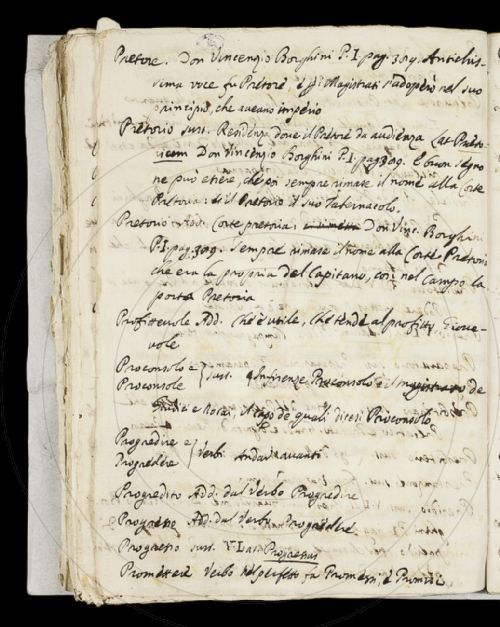 Pretore. Don Vincenzio Borghini P. I pag. 309. Antichis-
sima voce fu Pretore, e i Magistrati s'adoperò nel suo
principio, che aveano imperio
Pretorio sust. Residenza dove il Pretore da audienza Lat. Præto-
rium Don Vincenzio Borghini P. I pag. 309. e buon segno
ne può essere, che poi sempre rimase il nome alla Corte
Pretoria: il Pretorio il suo Tabernacolo.
Pretorio Add. Corte pretoria: Don Vinc. Borghini
P. I pag. 309. Sempre rimase il nome alla Corte Pretoria
che era la propria del Capitano, così nel Campo la
porta Pretoria
Profittevole Add. Che è utile, che tende al profitto Giove-
vole
Proconsolo e } sust. In Firenze Proconsolo è il magistrato de
Proconsole
Giudici e Notai, il capo de quali dicesi Proconsolo
Progredire e } Verbi Andar avanti
Progredire Add. dal Verbo Progredire
Progresso Add. dal Verbo Progredire
Progresso sust. V. L. Progressus
Promettere Verbo nel perfetto fa Promessi, e Promisi